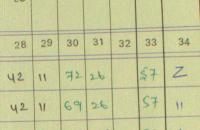 28 29 30 31 32 33 34
42 11 72 26 57 Z
42 11 69 26 57 11